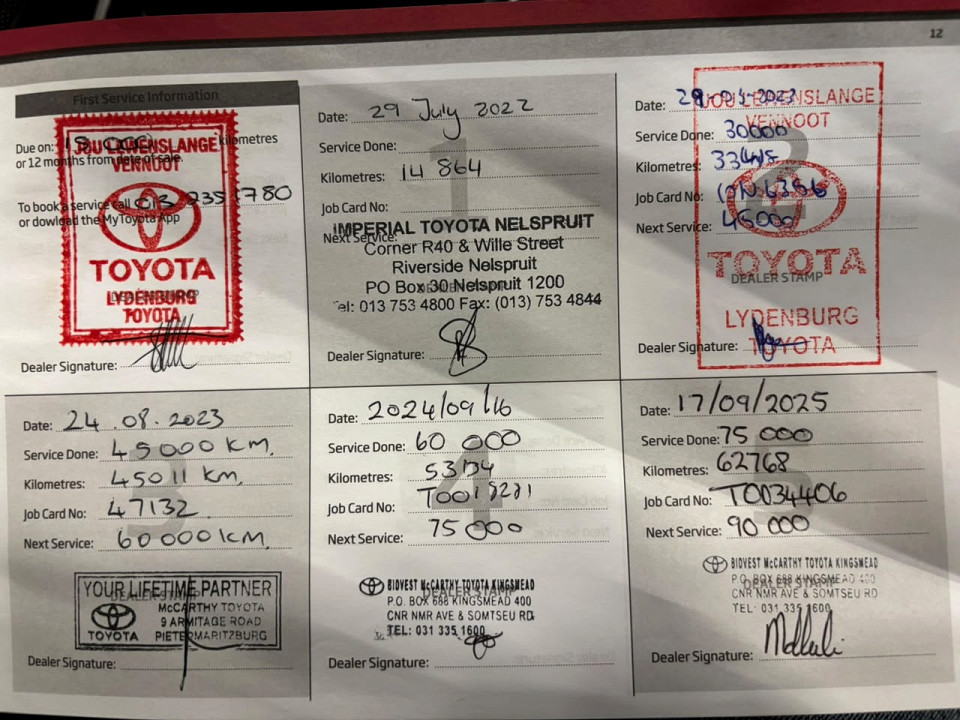 12
First Service Information
Due on: 15 000 kilometres
or 12 months from date of sale.
To book a service call 013 235 1780
or dowload the MyToyota App
JOU LEWENSLANGE
VENNOOT
TOYOTA
LYDENBURG
TOYOTA
Dealer Signature:
Date: 29 July 2022
Service Done:
Kilometres: 14 864
Job Card No:
Next Service:
IMPERIAL TOYOTA NELSPRUIT
Corner R40 & Wille Street
Riverside Nelspruit
PO Box 30 Nelspruit 1200
Tel: 013 753 4800 Fax: (013) 753 4844
Dealer Signature:
Date:
JOU LEWENSLANGE
VENNOOT
Service Done: 30000
Kilometres:
Job Card No:
Next Service: 45000
TOYOTA
DEALER STAMP
LYDENBURG
TOYOTA
Dealer Signature:
Date: 24.08.2023
Service Done: 45000 KM.
Kilometres: 45011 KM.
Job Card No: 47132
Next Service: 60000KM.
YOUR LIFETIME PARTNER
DEALER STAMP
McCARTHY TOYOTA
9 ARMITAGE ROAD
TOYOTA PIETERMARITZBURG
Dealer Signature:
Date: 2024/09/16
Service Done: 60 000
Kilometres:
Job Card No:
Next Service: 75 000
BIDVEST McCARTHY TOYOTA KINGSMEAD
DEALER STAMP
P.O. BOX 688 KINGSMEAD 400
CNR NMR AVE & SOMTSEU RD
TEL: 031 335 1600
Dealer Signature:
Date: 17/09/2025
Service Done: 75 000
Kilometres: 62768
Job Card No: T0034406
Next Service: 90 000
BIDVEST McCARTHY TOYOTA KINGSMEAD
P.O. BOX 688 KINGSMEAD 400
DEALER STAMP
CNR NMR AVE & SOMTSEU RD
TEL: 031 335 1600
Dealer Signature: